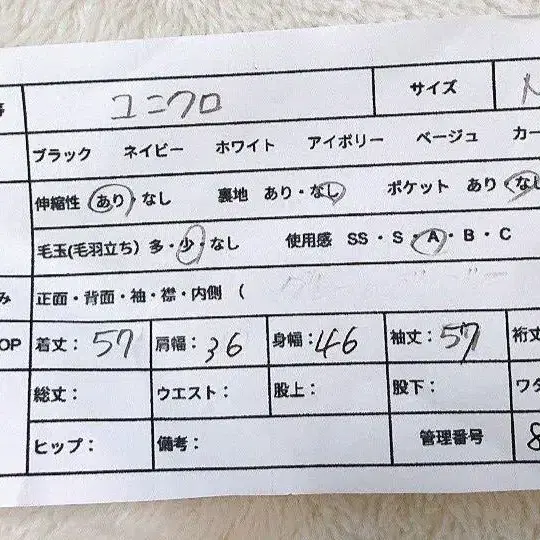 ユニクロ サイズ
ブラック ネイビー ホワイト アイボリー ベージュ カー
伸縮性 あり・なし 裏地 あり・なし ポケット あり・なし
毛玉(毛羽立ち) 多・少・なし 使用感 SS・S・A・B・C
み 正面・背面・袖・襟・内側 (
OP 着丈: 57 肩幅: 36 身幅: 46 袖丈: 57 裄丈
総丈: ウエスト: 股上: 股下: ワタ
ヒップ: 備考: 管理番号 8